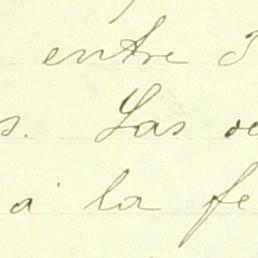 entre
s. Las
á la fe